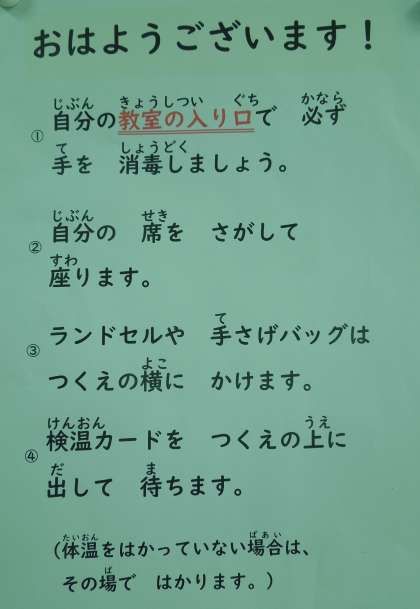 おはようございます！
① 自分の教室の入り口で　必ず
手を　消毒しましょう。
② 自分の　席を　さがして
座ります。
③ ランドセルや　手さげバッグは
つくえの横に　かけます。
④ 検温カードを　つくえの上に
出して　待ちます。
（体温をはかっていない場合は、
その場で　はかります。）